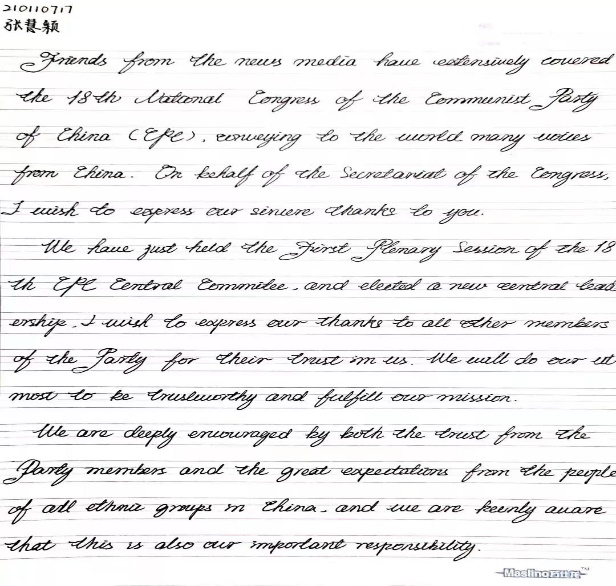 210110717
张慧颖
Friends from the news media have extensively covered
the 18th National Congress of the Communist Party
of China (CPC), conveying to the world many voices
from China. On behalf of the Secretariat of the Congress,
I wish to express our sincere thanks to you.
We have just held the First Plenary Session of the 18
th CPC Central Commitee, and elected a new central lead
ership. I wish to express our thanks to all other members
of the Party for their trust in us. We will do our ut
most to be trustworthy and fulfill our mission.
We are deeply encouraged by both the trust from the
Party members and the great expectations from the people
of all ethnic groups in China, and we are keenly aware
that this is also our important responsibility.